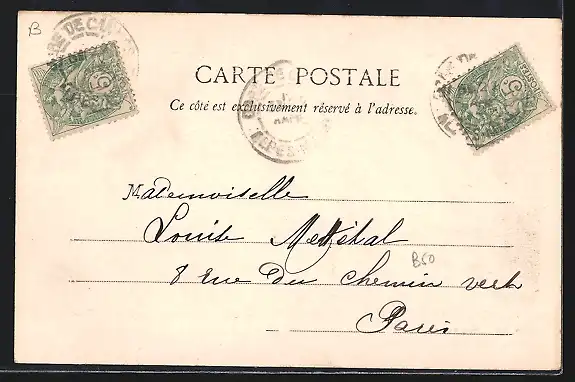 B
CARTE POSTALE
Ce côté est exclusivement réservé à l'adresse.
5
5
POSTES
Mademoiselle
Louise
8 rue Du Chemin vert
B50
Paris